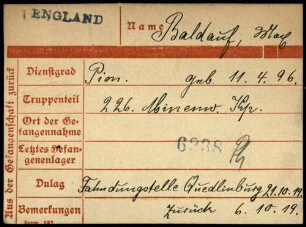 ENGLAND
Name Baldauf, Max
Dienstgrad Pion. geb. 11. 4. 96.
Truppenteil 226. Minenw. Kp.
Ort der Gefangennahme
Letztes Gefangenenlager 6238
Dulag Fahndungstelle Quedlinburg 21.10.19.
Bemerkungen Zurück 6. 10. 19.
Aus der Gefangenschaft zurück